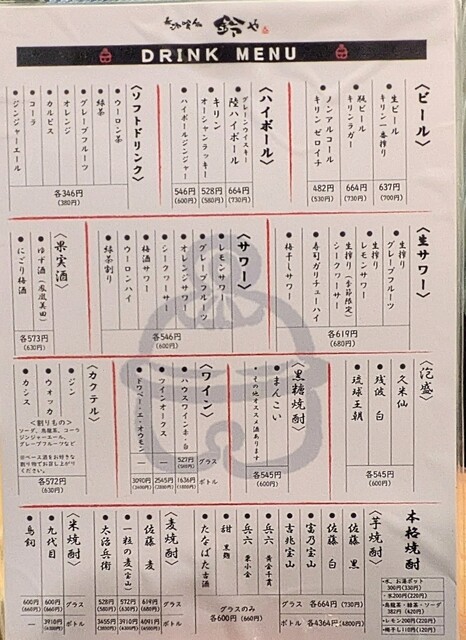 鈴や
DRINK MENU
〈ビール〉
生ビール
キリン一番搾り
637円
(700円)
瓶ビール
キリンラガー
664円
(730円)
ノンアルコール
キリン ゼロイチ
482円
(530円)
〈ハイボール〉
グレーンウイスキー
陸ハイボール
664円
(730円)
キリン
オーシャンラッキー
528円
(580円)
ハイボールジンジャー
546円
(600円)
〈ソフトドリンク〉
ウーロン茶
緑茶
グレープフルーツ
オレンジ
カルピス
コーラ
ジンジャーエール
各346円
(380円)
〈生サワー〉
生搾り
グレープフルーツ
生搾り
レモンサワー
生搾り(季節限定)
シークワーサー
寿司ガリチューハイ
梅干しサワー
各619円
(680円)
〈サワー〉
レモンサワー
グレープフルーツ
オレンジサワー
シークワーサー
梅酒サワー
ウーロンハイ
緑茶割り
各546円
(600円)
〈果実酒〉
ゆず酒(鳳凰美田)
にごり梅酒
各573円
(630円)
〈泡盛〉
久米仙
残波 白
琉球王朝
各545円
(600円)
〈黒糖焼酎〉
まんこい
・その他オススメ酒あります
各545円
(600円)
〈ワイン〉
グラス
ボトル
ハウスワイン赤・白
527円
(580円)
1636円
(1800円)
ツインオークス
—
2545円
(2800円)
ドウベー・エ・オウモン
—
3090円
(3400円)
〈カクテル〉
ジン
ウオッカ
カシス
<割りもの>
ソーダ、烏龍茶、コーラ
ジンジャーエール、
グレープフルーツなど
※ベース酒をお好きな
割り物でお召し上がり
ください。
各572円
(630円)
本格焼酎
・水、お湯ポット
300円(330円)
・氷200円(220円)
・烏龍茶・緑茶・ソーダ
382円(420円)
・レモン200円(220円)
・梅干し110円(120円)
〈芋焼酎〉
佐藤 黒
佐藤 白
富乃宝山
吉兆宝山
グラス
各664円(730円)
ボトル
各4364円(4800円)
兵六 黄金千貫
兵六 栗小金
甜 黒麹
たなばた古酒
グラスのみ
各600円(660円)
〈麦焼酎〉
グラス
ボトル
佐藤 麦
619円
(680円)
4091円
(4500円)
一粒の麦(宝山)
572円
(630円)
3910円
(4300円)
太治兵衛
528円
(580円)
3455円
(3800円)
〈米焼酎〉
グラス
ボトル
九代目
600円
(660円)
3910円
(4300円)
鳥飼
600円
(660円)
—